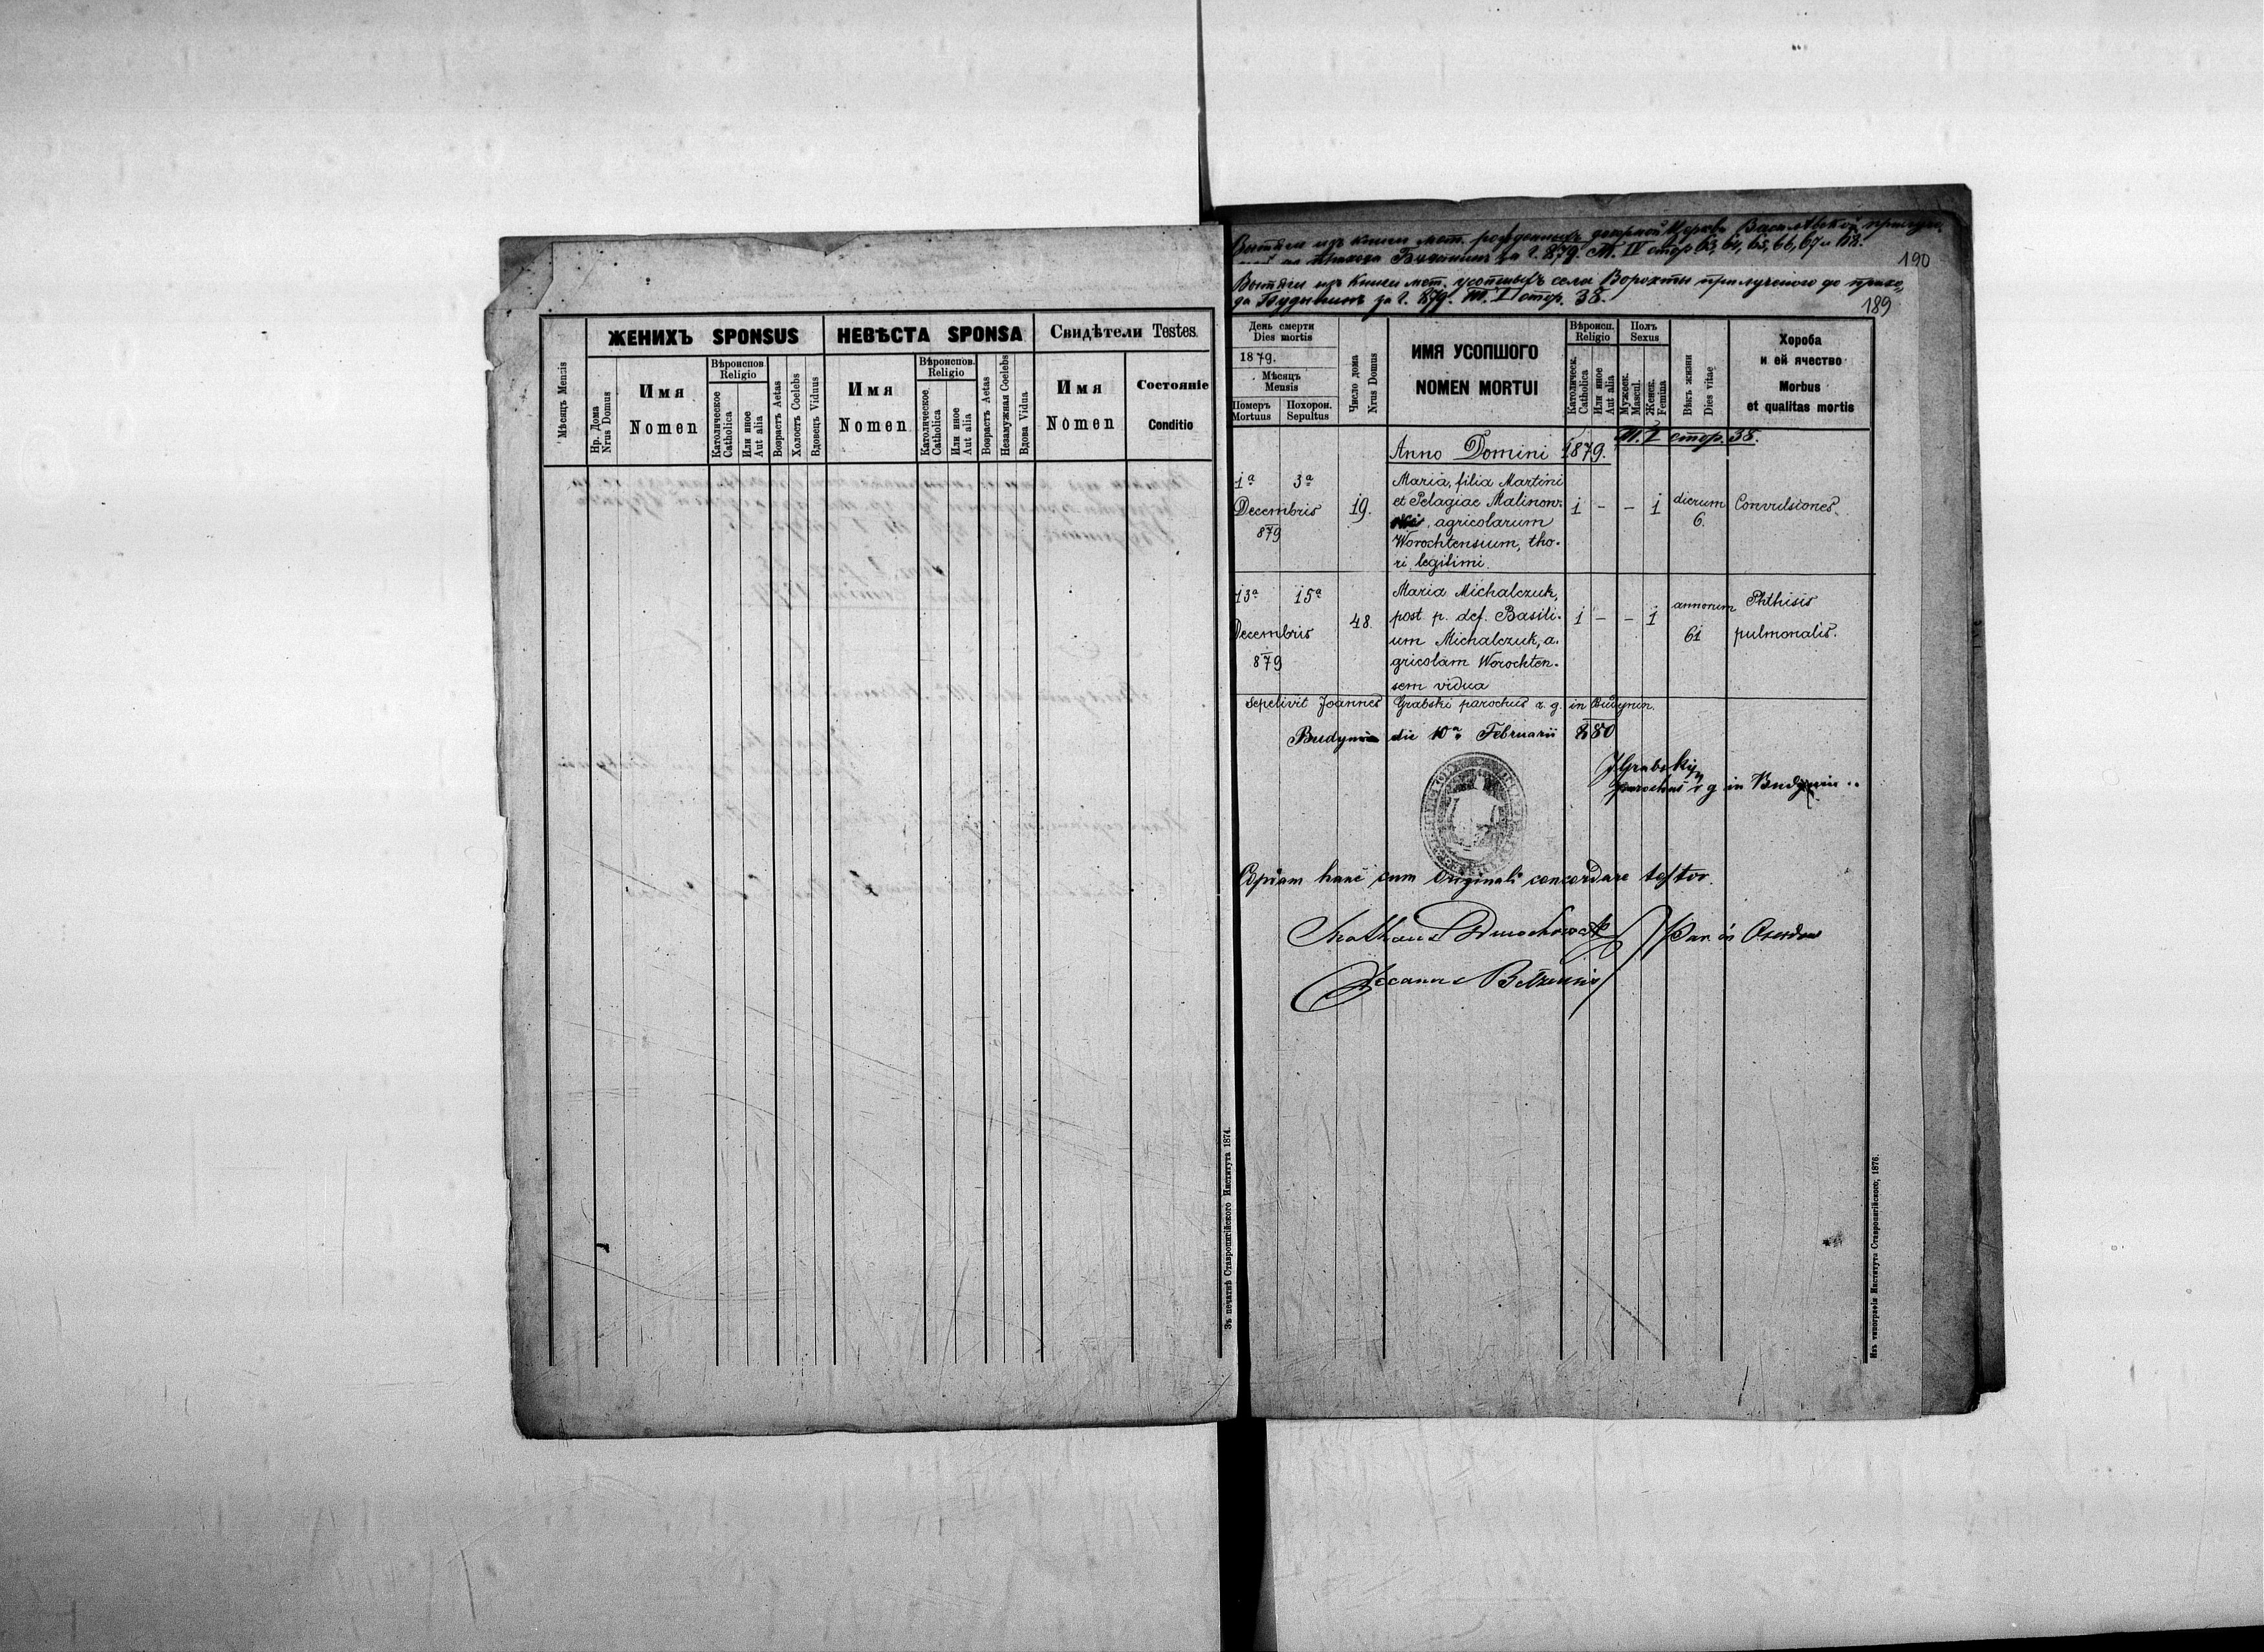 ЖЕНИХЪ SPONSUS
НЕВѢСТА SPONSA
Свидѣтели Testes.
Мѣсяцъ Mensis
Нр. Дома
Nrus Domus
Имя
Nomen
Вѣроиспов.
Religio
Католическое
Catholica
Или иное
Aut alia
Возрастъ Aetas
Холостъ Coelebs
Вдовецъ Viduus
Имя
Nomen
Вѣроиспов.
Religio
Католическое
Catholica
Или иное
Aut alia
Возрастъ Aetas
Незамужная Coelebs
Вдова Vidua
Имя
Nomen
Состоянiе
Conditio
Зъ печатнѣ Ставропигiйского Института 1874.
Вытягъ изъ книги мет. рожденныхъ
прихода Будынинъ за г. 879. Т. IV стор 63, 64, 65, 66, 67 и 68.
190
Вытягъ изъ книги мет. усопшыхъ села Ворохты прилученого до прихо-
да Будынинъ за г. 879. Т. I стор. 38.
189
День смерти
Dies mortis
1879.
Мѣсяцъ
Mensis
Померъ
Mortuus
Похорон.
Sepultus
Число дома
Nrus Domus
ИМЯ УСОПШОГО
NOMEN MORTUI
Вѣроисп.
Religio
Католическ.
Catholica
Или иное
Aut alia
Полъ
Sexus
Мужеск.
Mascul.
Женск.
Femina
Вѣкъ жизни
Dies vitae
Хороба
и ей ячество
Morbus
et qualitas mortis
Anno Domini 1879.
Т. I стор. 38.
1a 3a
Decembris
879
19.
Maria, filia Martini
et Pelagiae Malinow-
agricolarum
Worochtensium, tho-
ri legitimi.
1 - - 1
dierum
6.
Convulsiones.
13a 15a
Decembris
879
48.
Maria Michalczuk,
post p. def. Basili-
um Michalczuk, a-
gricolam Worochten-
sem vidua
1 - - 1
annorum
61
Phthisis
pulmonalis.
Sepelivit Joannes Grabski parochus r. g. in Budynin.
Budynin die 10a Februarii 880
J Grabskij
parochus r g in Budynin
Copiam hanc cum originali concordare testor.
Decanus Betzensis
Изъ типографiи Института Ставропигiйского, 1876.